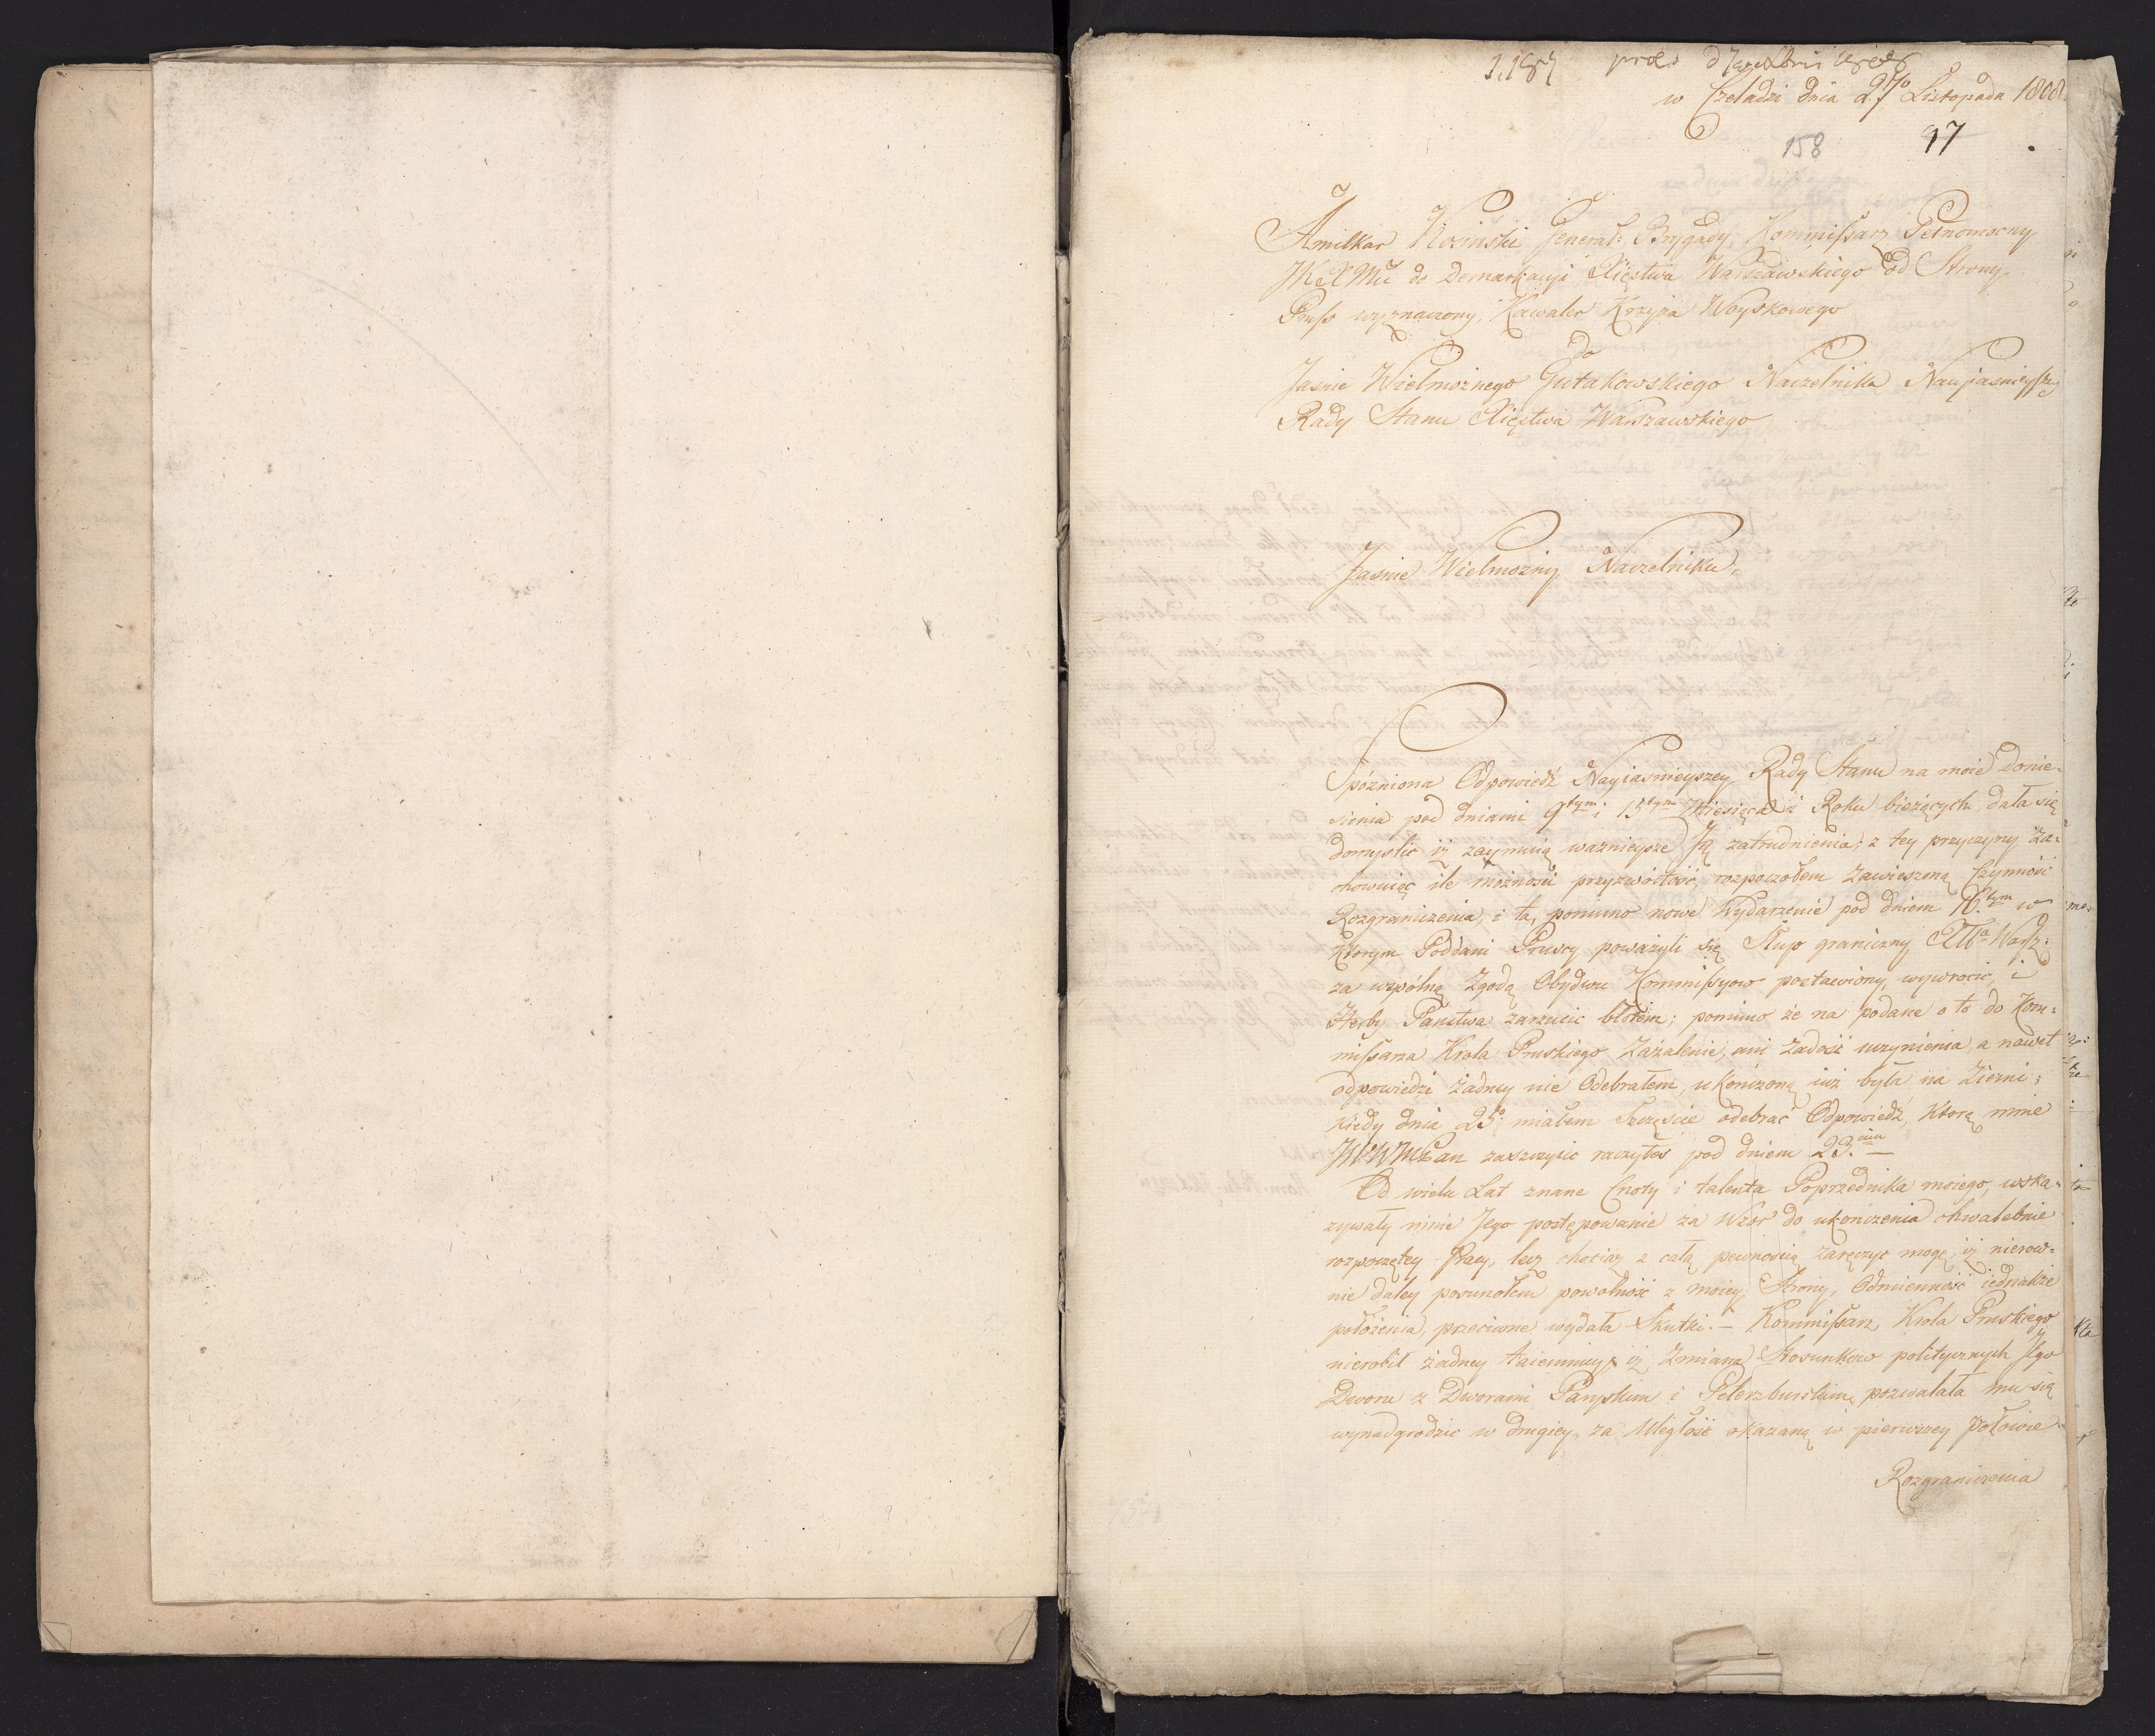 w Czeladzi dnia 27º Listopada 1808
158 97
Amilkar Kosiński Generał: Brygady, Kommissarz Pełnomocny
JKXMci do Demarkacyi Xięstwa Warszawskiego od Strony
Pruss wyznaczony, Kawaler Krzyża Woyskowego
do
Jasnie Wielmożnego Gutakowskiego Naczelnika Nayjasnieyszey
Rady Stanu Xięstwa Warszawskiego
Jasnie Wielmożny Naczelniku,
Spózniona Odpowiedź Nayjasnieyszey Rady Stanu na moie donie-
sienia pod dniami 9tym i 15tym Miesiąca i Roku bieżących dała się
domyslic iż zaymuią ważnieysze Ją zatrudnienia; z tey przyczyny za-
chowuiąc ile możnosci przyzwoitość, rozpoczołem zawieszoną Czynność
Rozgraniczenia, i ta, pomimo nowe Wydarzenie pod dniem 16.tym w
którym Poddani Pruscy poważyli się Słup graniczny XWa Warsz:
za wspólną Zgodą Obydwu Kommissyow postawiony, wywrocic, i
Herby Panstwa zarzucic błotem; pomimo że na podane o to do Kom-
missarza Krola Pruskiego Zażalenie, ani Zadość uczynienia, a nawet
odpowiedzi żadney nie Odebrałem, ukończoną iuż była na Ziemi;
kiedy dnia 25º miałem Szczęscie odebrać Odpowiedź, którą mnie
JWWMPan zaszczycic raczyłes pod dniem 23.cim —
Od wielu Lat znane Cnoty i talenta Poprzednika moiego, wska-
zywały mnie Jego postępowanie za Wzór do ukończenia chwalebnie
rozpoczętey Pracy, lecz chociaż z całą pewnoscią zaręczyc mogę, iż nierow-
nie daley posunołem powolność z moiey Strony, Odmienność iednakże
położenia, przeciwne wydała Skutki. — Kommissarz Krola Pruskiego
nierobił żadney taiemnicy, iż Zmiana Stosunkow politycznych Jego
Dworu z Dworami Paryskim i Peterzburskim, pozwalała mu się
wynadgrodzic w drugiey, za Uległość okazaną w pierwszey połowie
Rozgraniczenia